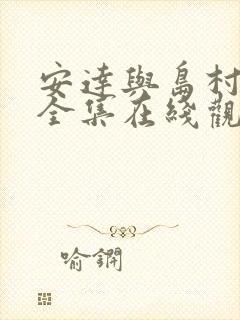 安達與島村
全集在綫觀
喻鐧